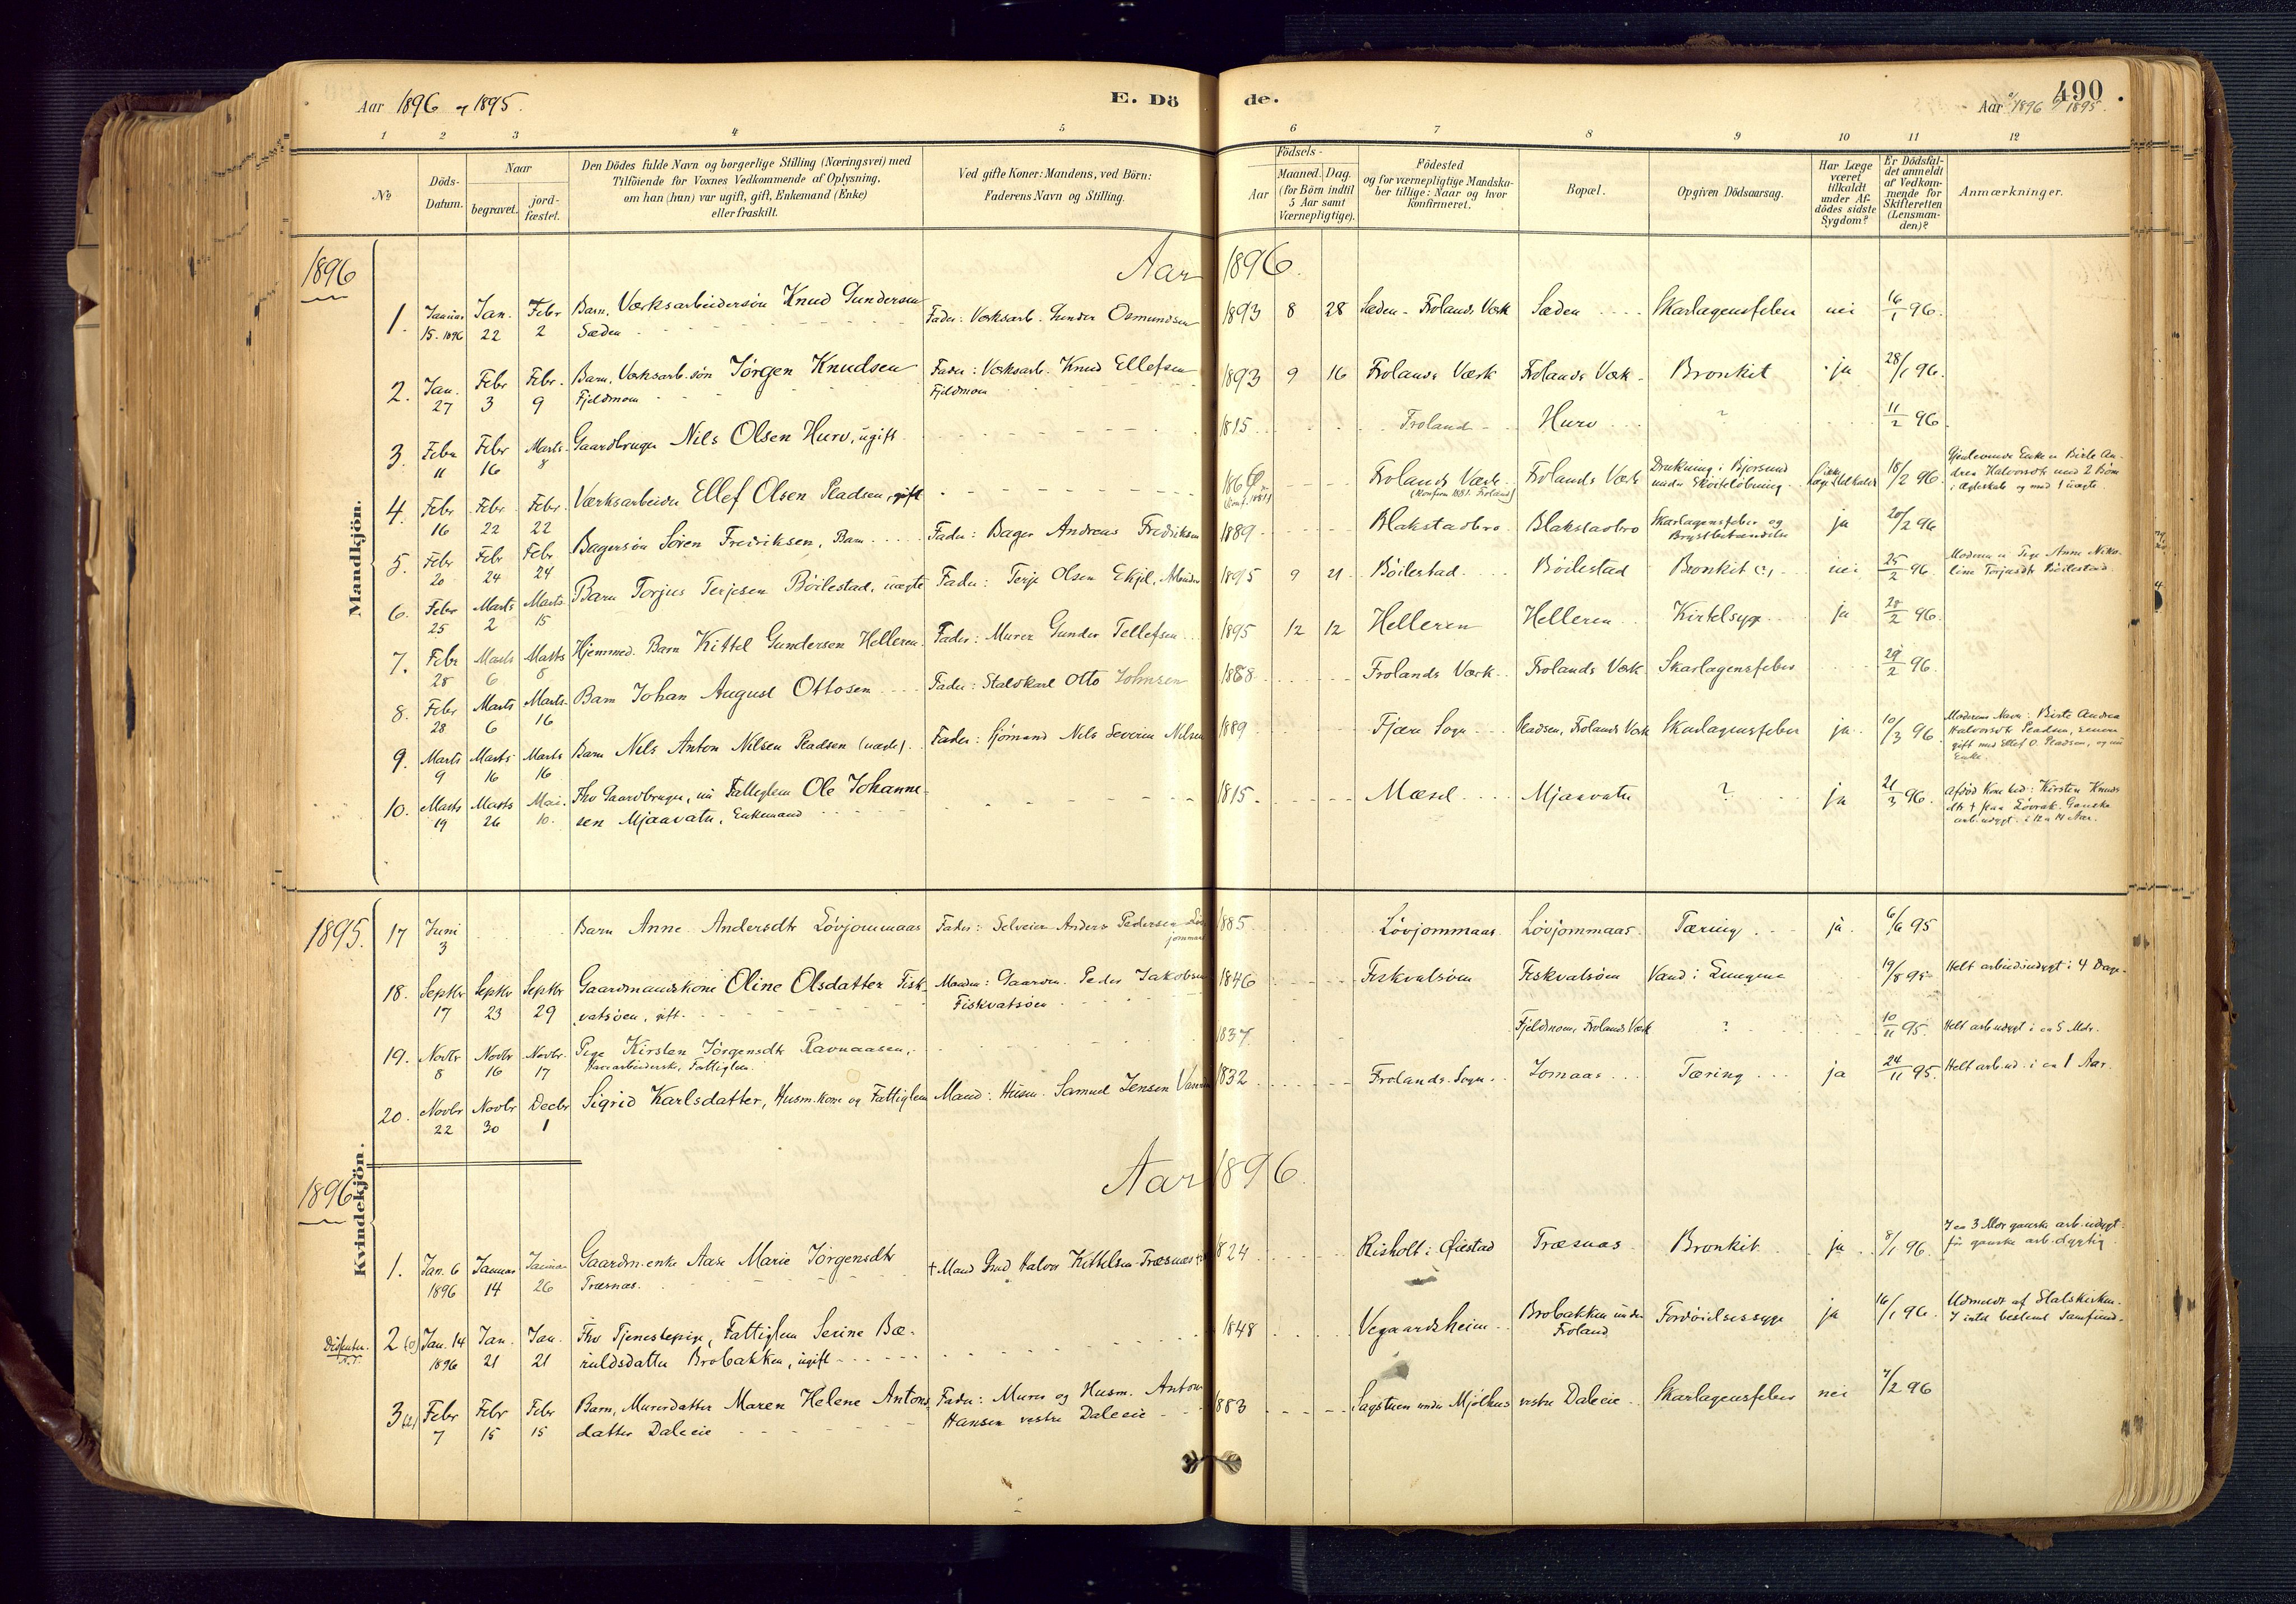 Aar 1896 og 1895.
E. Dö
de.
490.
Aar 1896 1895.
1 2 3 4 5 6 7 8 9 10 11 12
No
Döds-Datum.
Naar
begravet.
jord-fæstet.
Den Dödes fulde Navn og borgerlige Stilling (Næringsvei) med
Tilföiende for Voxnes Vedkommende af Oplysning,
om han (hun) var ugift, gift, Enkemand (Enke)
eller fraskilt.
Ved gifte Koner: Mandens, ved Börn:
Faderens Navn og Stilling.
Födsels-
Aar
Maaned. Dag.
(for Börn indtil
5 Aar samt
Værnepligtige).
Födested
og for værnepligtige Mandska-
ber tillige: Naar og hvor
konfirmeret.
Bopæl.
Opgiven Dödsaarsag.
Har Læge
været
tilkaldt
under Af-
dödes sidste
Sygdom?
Er Dödsfal-
det anmeldt
af Vedkom-
mende for
Skifteretten
(Lensman-
den)?
Anmærkninger.
Mandkjön.
1896
Aar 1896.
1. Januar 15. 1896 Jan. 22 Febr 2 Barn, Værksarbeidersøn Knud Gundersen Fader: Værksarb. Gunder Osmundsen 1893 8 28 Sæden - Frolands Værk Sæden Skarlagensfeber nei 16/1 96.
Sæden
2. Jan. 27 Febr 3 Febr. 9 Barn, Værksarb.søn Jørgen Knudsen Fader: Værksarb. Knud Ellefsen 1893 9 16 Frolands Værk Frolands Værk Bronkit ja 28/1 96.
Fjeldmom Fjeldmom
3. Febr 11 Febr 16 Marts 8 Gaardbruger Nils Olsen Hurv, ugift 1815 Froland Hurv ? 11/2 96
4. Febr 16 Febr 22 Febr. 22 Værksarbeider Ellef Olsen Pladsen, gift 1866 Frolands Værk Frolands Værk Drukning i Bjorsund 18/2 96.
(Konfirm 1881. Froland) under Skøiteløbning
Gjenlevende Enke er Birte An-
drea Halvorsdtr med 2 Børn
i ægteskab og med 1 uægte.
5. Febr 20 Febr 24 Febr 24 Bagersøn Søren Fredriksen, Barn Fader: Bager Andreas Fredriksen 1889 Blakstadbro Blakstadbro Skarlagensfeber og ja 20/2 96
Brystbetændelse
6. Febr 25 Marts 2 Marts 15 Barn Torjus Terjesen Bøilestad, uægte Fader: Terje Olsen Ekjel, Arbeider 1895 9 21 Bøilestad Bøilestad Bronkit nei 25/2 96.
Moderen er Pige Anne Niko-
line Torjusdtr Bøilestad.
7. Febr 28 Marts 6 Marts 8 Hjemmed. Barn Kittel Gundersen Helleren Fader: Murer Gunder Tellefsen 1895 12 12 Helleren Helleren Kirtelsyge ja 28/2 96.
8. Febr 28 Marts 6 Marts 16 Barn Johan August Ottosen Fader: Staldkarl Otto Johnsen 1888 Frolands Værk Frolands Værk Skarlagensfeber 29/2 96.
9. Marts 9 Marts 16 Marts 16 Barn Nils Anton Nilsen Pladsen (uægte). Fader: Sjømand Nils Severin Nilsen 1889 Fjære Sogn Pladsen, Frolands Værk Skarlagensfeber ja 10/3 96.
Moderens Navn: Birte Andrea
Halvorsdtr Pladsen, senere
gift med Ellef O. Pladsen, og nu
Enke.
10. Marts 19 Marts 26 Mai 10. Fhv Gaardbruger, nu Fattiglem Ole Johanne- 1815 Mæsel Mjaavatn ? ja 21/3 96.
sen Mjaavatn, Enkemand
Afdød Kone hed: Kirsten Knuds
dtr † paa Løvrak. Ganske
arb.udygt. i 12 à 14 Aar.
Kvindekjön.
1895.
17 Juni 3 Barn Anne Andersdtr Løvjommaas Fader: Selveier Anders Pedersen Løv-jommaas 1885 Løvjommaas Løvjommaas Tæring ja 6/6 95
18. Septbr 17 Septbr 23 Septbr 29 Gaardmandskone Oline Olsdatter Fisk- Manden: Gaardm. Peder Jakobsen 1846 Fiskvatsøen Fiskvatsøen Vand i Lungene 19/8 95 Helt arbeidsudygt i 4 Dage
vatsøen, gift. Fiskvatsøen
19. Novbr 8 Novbr 16 Novbr. 17 Pige Kirsten Jørgensdtr Ravnaasen, 1837 Fjeldmom, Frolands Værk ? 10/11 95. Helt arb.udygt i ca 5 Mdr.
Haarbeiderske, Fattiglem.
20. Novbr 22 Novbr 30 Decbr 1 Sigrid Karlsdatter, Husm.kone og Fattiglem Mand: Husm. Samuel Jensen 1832 Frolands Sogn Jomaas Tæring ja 24/11 95. Helt arb.ud. i ca 1 Aar.
1896
Aar 1896
1. Jan. 6 1896 Januar 14 Januar 26 Gaardm.enke Aase Marie Jørgensdtr † Mand Gmd Halvor Kittelsen Træsnæs 1824 Risholt i Øiestad Træsnæs Bronkit ja 8/1 96.
Træsnæs.
I ca 3 Mdr ganske arb.udygt.
før ganske arb.dygtig.
Dissenter. 2 (0) Jan. 14 1896 Jan. 21 Jan. 21 Fhv Tjenestepige, Fattiglem Serine Bæ- 1848 Vegaardsheim Brobakken under Froland Fordøielsessyge ja 16/1 96.
ruldsdatter Brobakken, ugift
Udmeldt af Statskirken.
I intet bestemt Samfund.
3 (2) Febr 7 Febr 15 Febr 15 Barn, Murerdatter Maren Helene Antons Fader: Murer og Husm. Anton 1883 Sagstuen under Mjølhus vestre Daleeie Skarlagensfeber nei 7/2 96
datter Daleeie Hansen vestre Daleeie